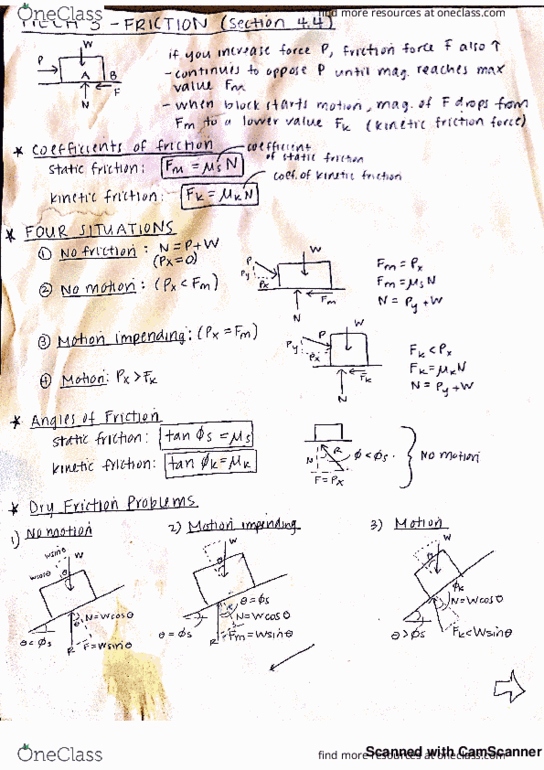 OneClass
find more resources at oneclass.com
MECH 3 - FRICTION (Section 4.4)
if you increase force P, friction force F also ↑
- continues to oppose P until mag. reaches max value Fm
- when block starts motion, mag. of F drops from Fm to a lower value Fk (kinetic friction force)
W
P
A
B
F
N
* coefficients of friction
coefficient of static friction
static friction: Fm = μsN
coef. of kinetic friction
kinetic friction: Fk = μkN
* FOUR SITUATIONS
① No friction: N = P+W
(Px=0)
② No motion: (Px < Fm)
W
P
Py
Px
Fm
N
Fm = Px
Fm = μsN
N = Py+W
③ Motion impending: (Px = Fm)
④ Motion: Px > Fk
W
P
Py
Px
Fk
N
Fk < Px
Fk = μkN
N = Py+W
* Angles of Friction
static friction: tan ϕs = μs
kinetic friction: tan ϕk = μk
N
R
ϕ < ϕs
F = Px
No motion
* Dry Friction Problems
1) No motion
2) Motion impending
3) Motion
wsinθ
W
wcosθ
θ
N=Wcosθ
θ<ϕs
R
F=Wsinθ
W
θ=ϕs
N=Wcosθ
θ=ϕs
R
Fm=Wsinθ
W
ϕk
N=Wcosθ
θ>ϕs
Fk<Wsinθ
OneClass
find more resources at oneclass.com
Scanned with CamScanner